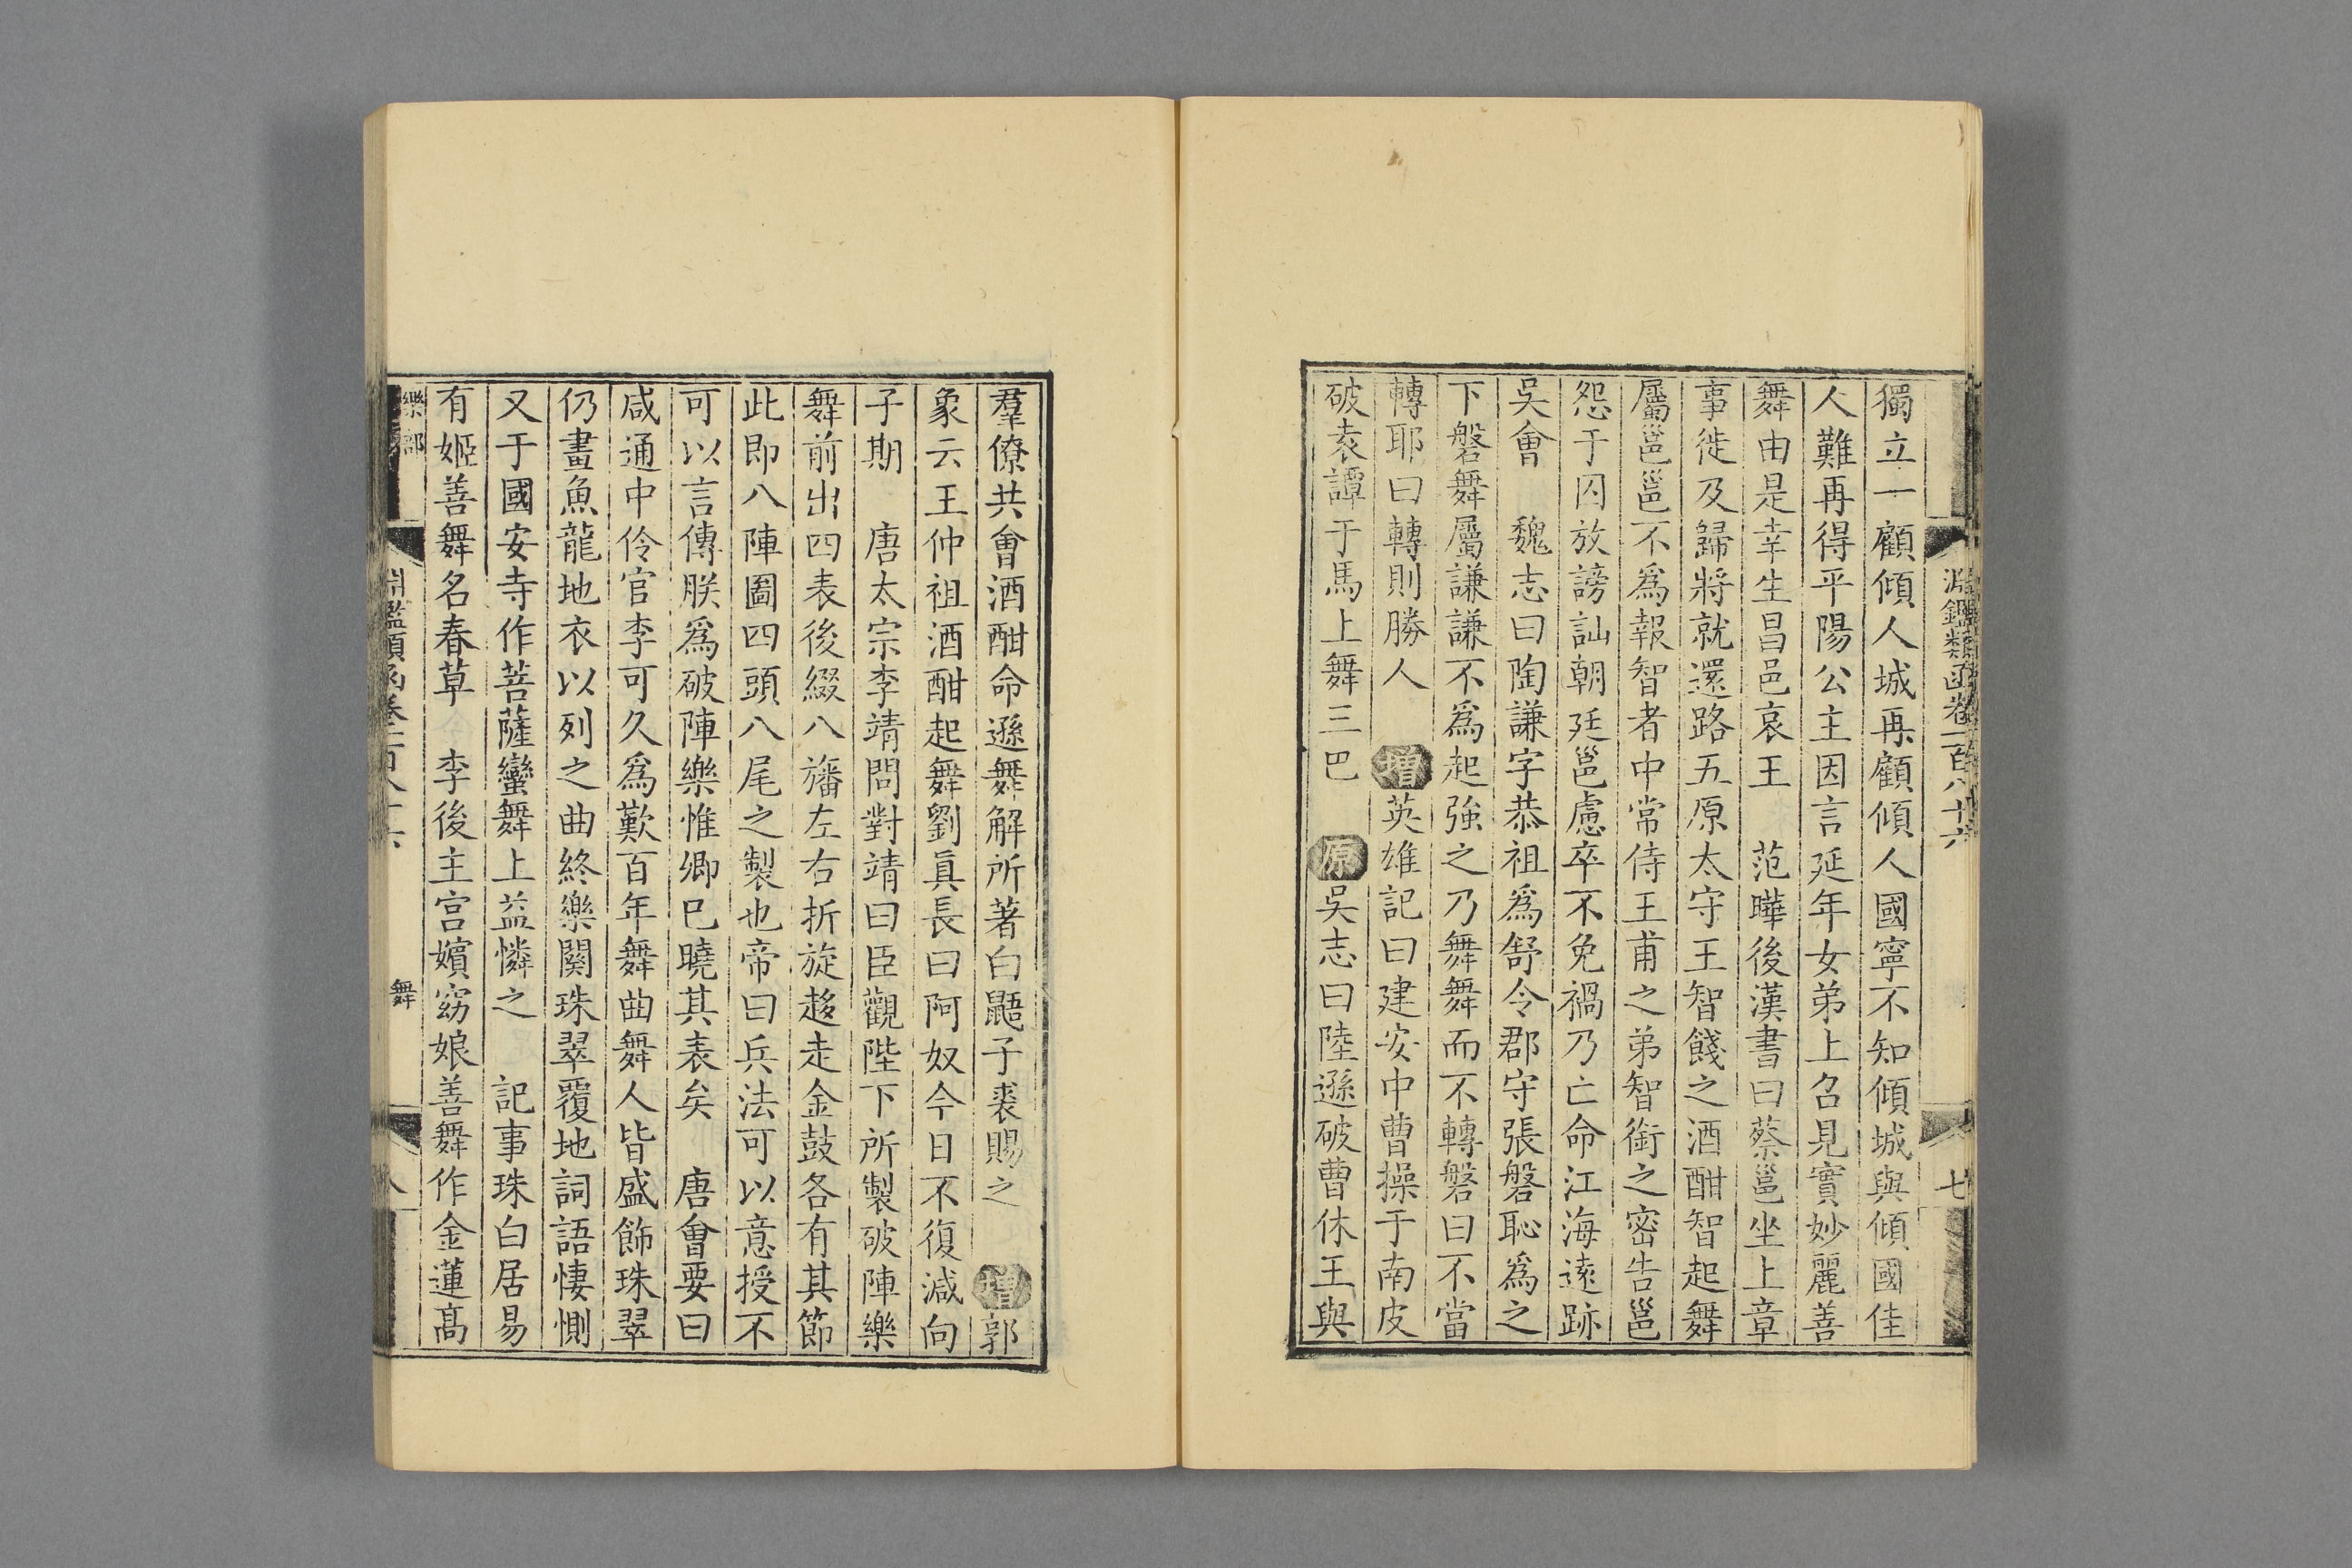 淵鑑類函卷一百八十六
七
獨立一顧傾人城再顧傾人國寧不知傾城與傾國佳
人難再得平陽公主因言延年女弟上召見實妙麗善
舞由是幸生昌邑哀王 范曄後漢書曰蔡邕坐上章
事徙及歸將就還路五原太守王智餞之酒酣智起舞
屬邕邕不爲報智者中常侍王甫之弟智銜之密告邕
怨于囚放謗訕朝廷邕慮卒不免禍乃亡命江海遠跡
吳會 魏志曰陶謙字恭祖爲舒令郡守張磐恥爲之
下磐舞屬謙謙不爲起強之乃舞舞而不轉磐曰不當
轉耶曰轉則勝人 增英雄記曰建安中曹操于南皮
破袁譚于馬上舞三巴 原吳志曰陸遜破曹休王與
羣僚共會酒酣命遜舞解所著白鼯子裘賜之 增郭
象云王仲祖酒酣起舞劉眞長曰阿奴今日不復減向
子期 唐太宗李靖問對靖曰臣觀陛下所製破陣樂
舞前出四表後綴八旛左右折旋趍走金鼓各有其節
此即八陣圖四頭八尾之製也帝曰兵法可以意授不
可以言傳朕爲破陣樂惟卿已曉其表矣 唐會要曰
咸通中伶官李可久爲歎百年舞曲舞人皆盛飾珠翠
仍畫魚龍地衣以列之曲終樂闋珠翠覆地詞語悽惻
又于國安寺作菩薩蠻舞上益憐之 記事珠白居易
有姬善舞名春草 李後主宮嬪窈娘善舞作金蓮高
樂部
淵鑑類函卷一百八十六
舞
八